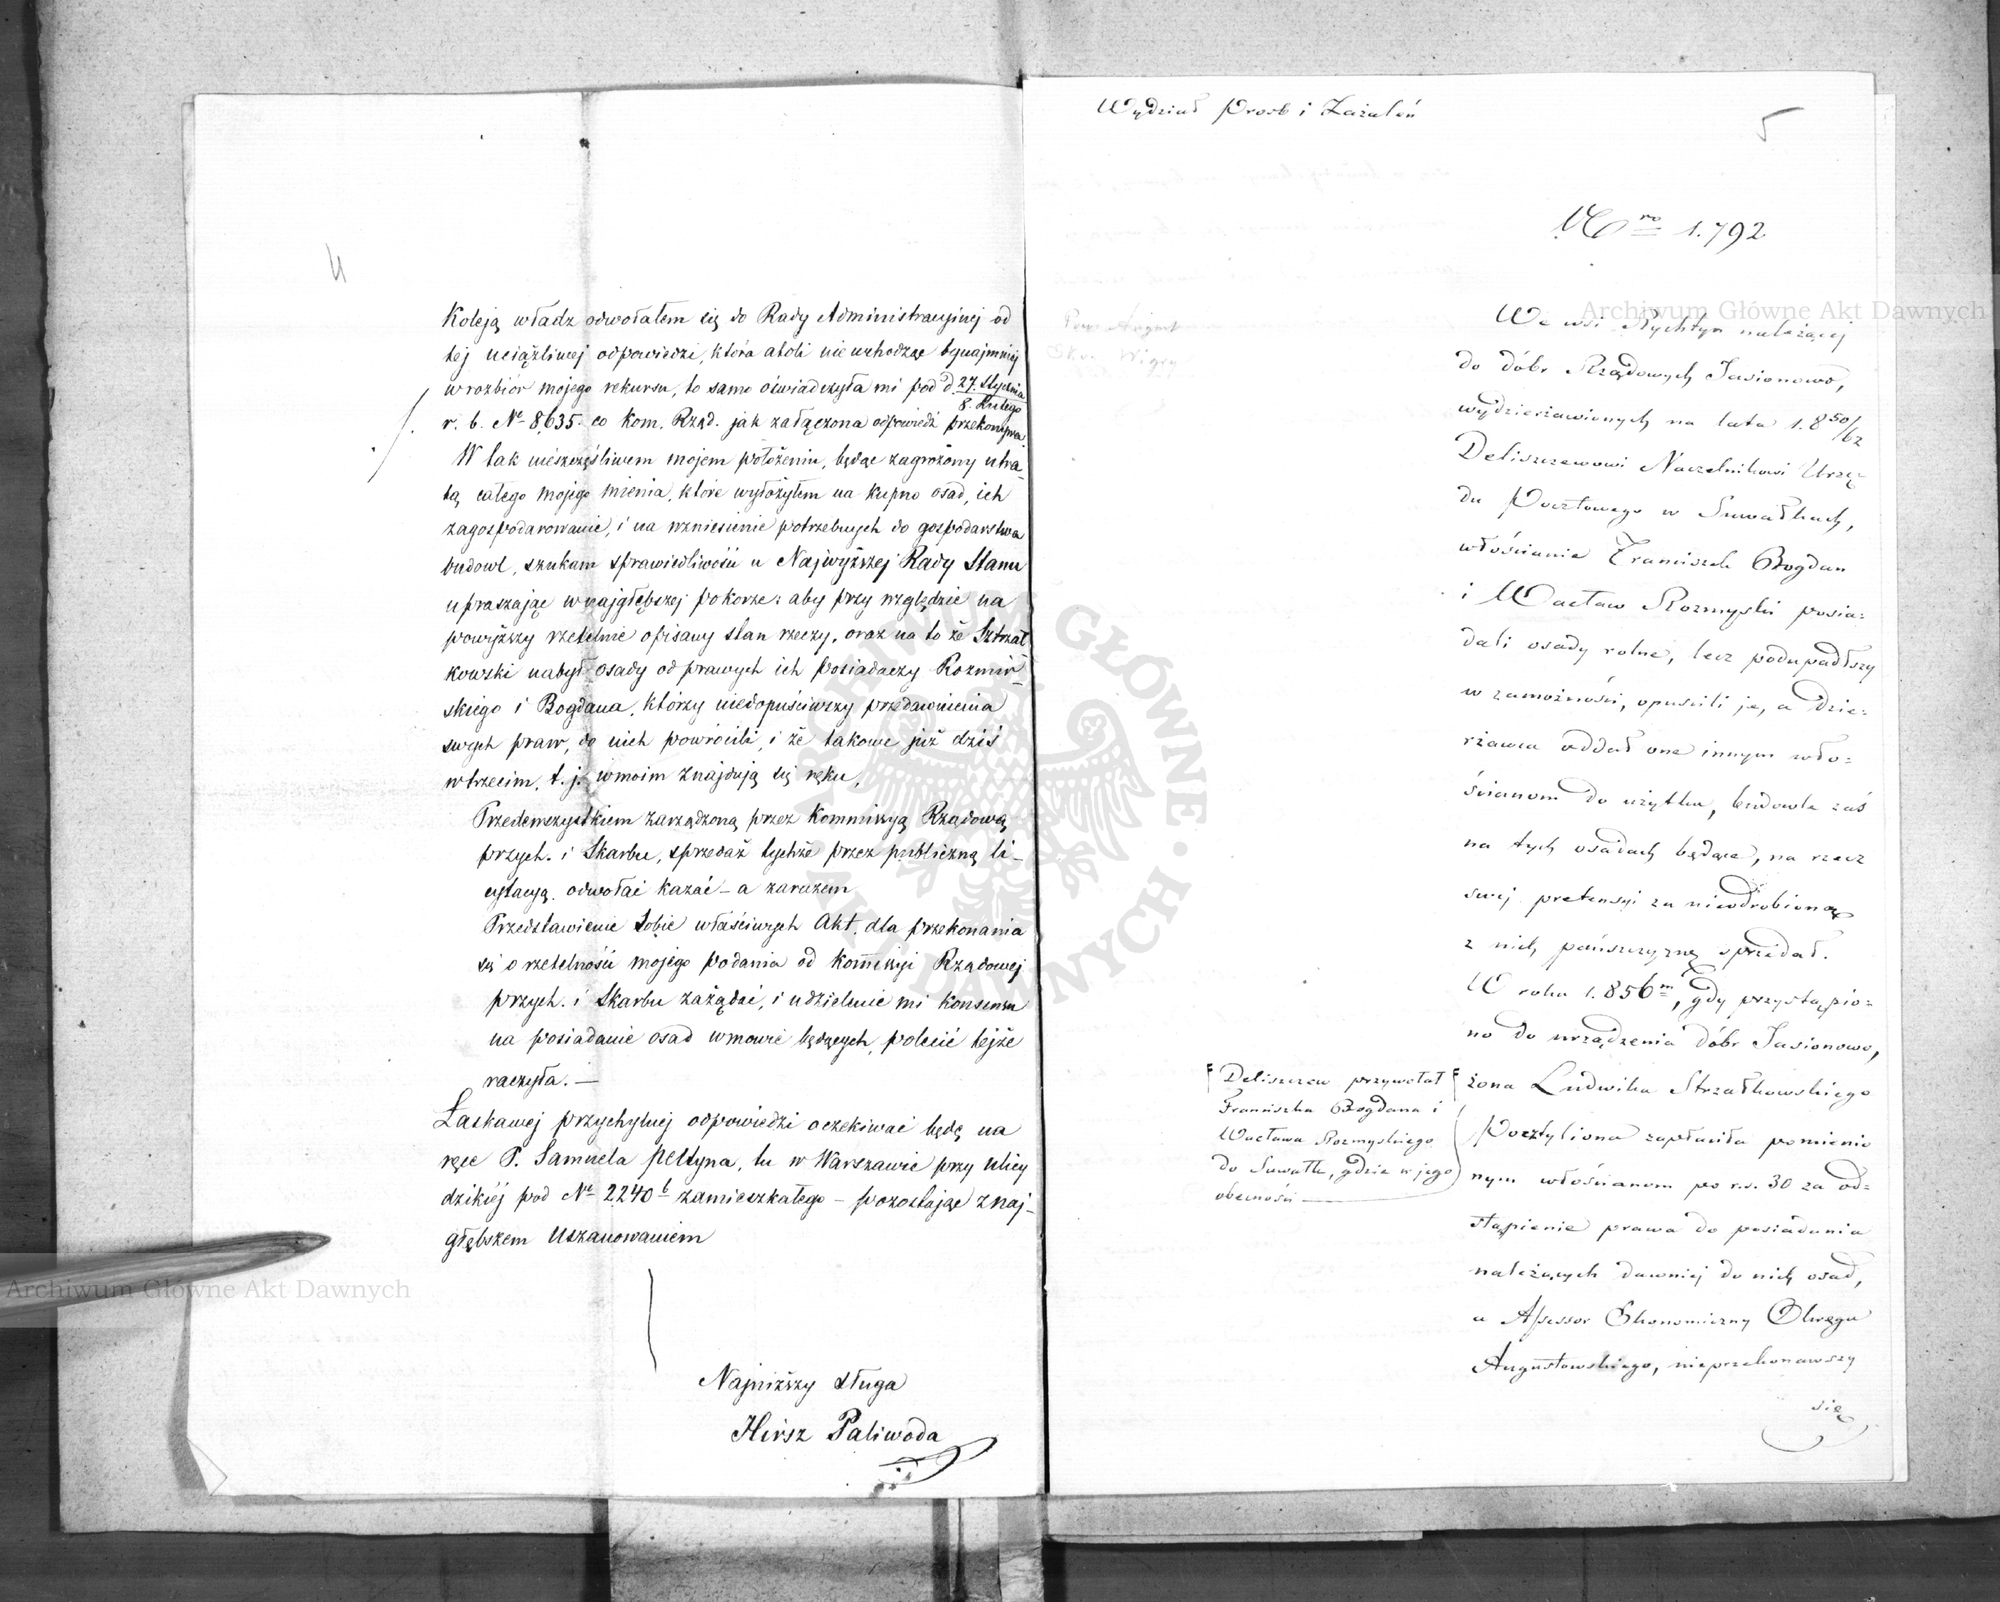 4
Koleją władz odwołałem się do Rady Administracyjnej od
tej uciążliwej odpowiedzi, która atoli nie wchodząc bynajmniej
w rozbiór mojego rekursu, to samo oświadczyła mi pod d. 27. Stycznia
8. Lutego
r. b. No 8,635. co Kom. Rząd. jak załączona odpowiedź przekonywa.
W tak nieszczęśliwem mojem położeniu, będąc zagrożony utra-
tą całego mojego mienia, które wyłożyłem na kupno osad, ich
zagospodarowanie, i na wzniesienie potrzebnych do gospodarstwa
budowl, szukam sprawiedliwości u Najwyższej Rady Stanu
upraszając w najgłębszej pokorze: aby przy względzie na
powyższy rzetelnie opisany stan rzeczy, oraz na to że Sztrzał
kowski nabył osady od prawych ich posiadaczy Rozmir-
skiego i Bogdana, którzy niedopuściwszy przedawnienia
swych praw, do nich powrócili, i że takowe już dziś
w trzecim, t. j. w moim znajdują się ręku,
Przedewszystkiem zarządzoną przez Kommissyą Rządową
przych. i Skarbu, sprzedaż tychże przez publiczną li-
cytacyą. odwołać kazać – a zarazem
Przedstawienie Sobie właściwych Akt. dla przekonania
się o rzetelności mojego podania od Kommissyi Rządowej
przych. i Skarbu zażądać, i udzielenie mi konsensu
na posiadanie osad w mowie będących, polecić tejże
raczyła. —
Łaskawej przychylnej odpowiedzi oczekiwać będę na
ręce P. Samuela Peltyna, tu w Warszawie przy ulicy
dzikiéj pod No 2240 b zamieszkałego – pozostając z naj-
głębszem Uszanowaniem
Najniższy sługa
Hirsz Paliwoda
Wydział Prosb i Zażaleń
5
Nro 1.792
We wsi Rychtyn należącej
do dóbr Rządowych Jasionowo,
wydzierżawionych na lata 1.850/62
Deliszczewowi Naczelnikowi Urzę-
du Pocztowego w Suwałkach,
włościanie Franciszek Bogdan
i Wacław Rozmyski posia-
dali osady rolne, lecz podupadłszy
w zamożności, opuścili je, a dzie-
rżawca oddał one innym wło-
ścianom do użytku, budowle zaś
na tych osadach będące, na rzecz
swej pretensyi za nieodrobioną
z nich pańszczyznę sprzedał.
W roku 1.856m, gdy przystąpio-
no do urządzenia dóbr Jasionowo,
żona Ludwika Strzałkowskiego
Pocztyliona zapłaciła pomienio
nym włościanom po r.s. 30 za od-
stąpienie prawa do posiadania
należących dawniej do nich osad,
a Assessor Ekonomiczny Okręgu
Augustowskiego, nieprzekonawszy
się
Deliszczew przywołał
Franciszka Bogdana i
Wacława Rozmyskiego
do Suwałk, gdzie w jego
obecności
Archiwum Główne Akt Dawnych
Archiwum Główne Akt Dawnych
ARCHIWUM GŁÓWNE AKT DAWNYCH